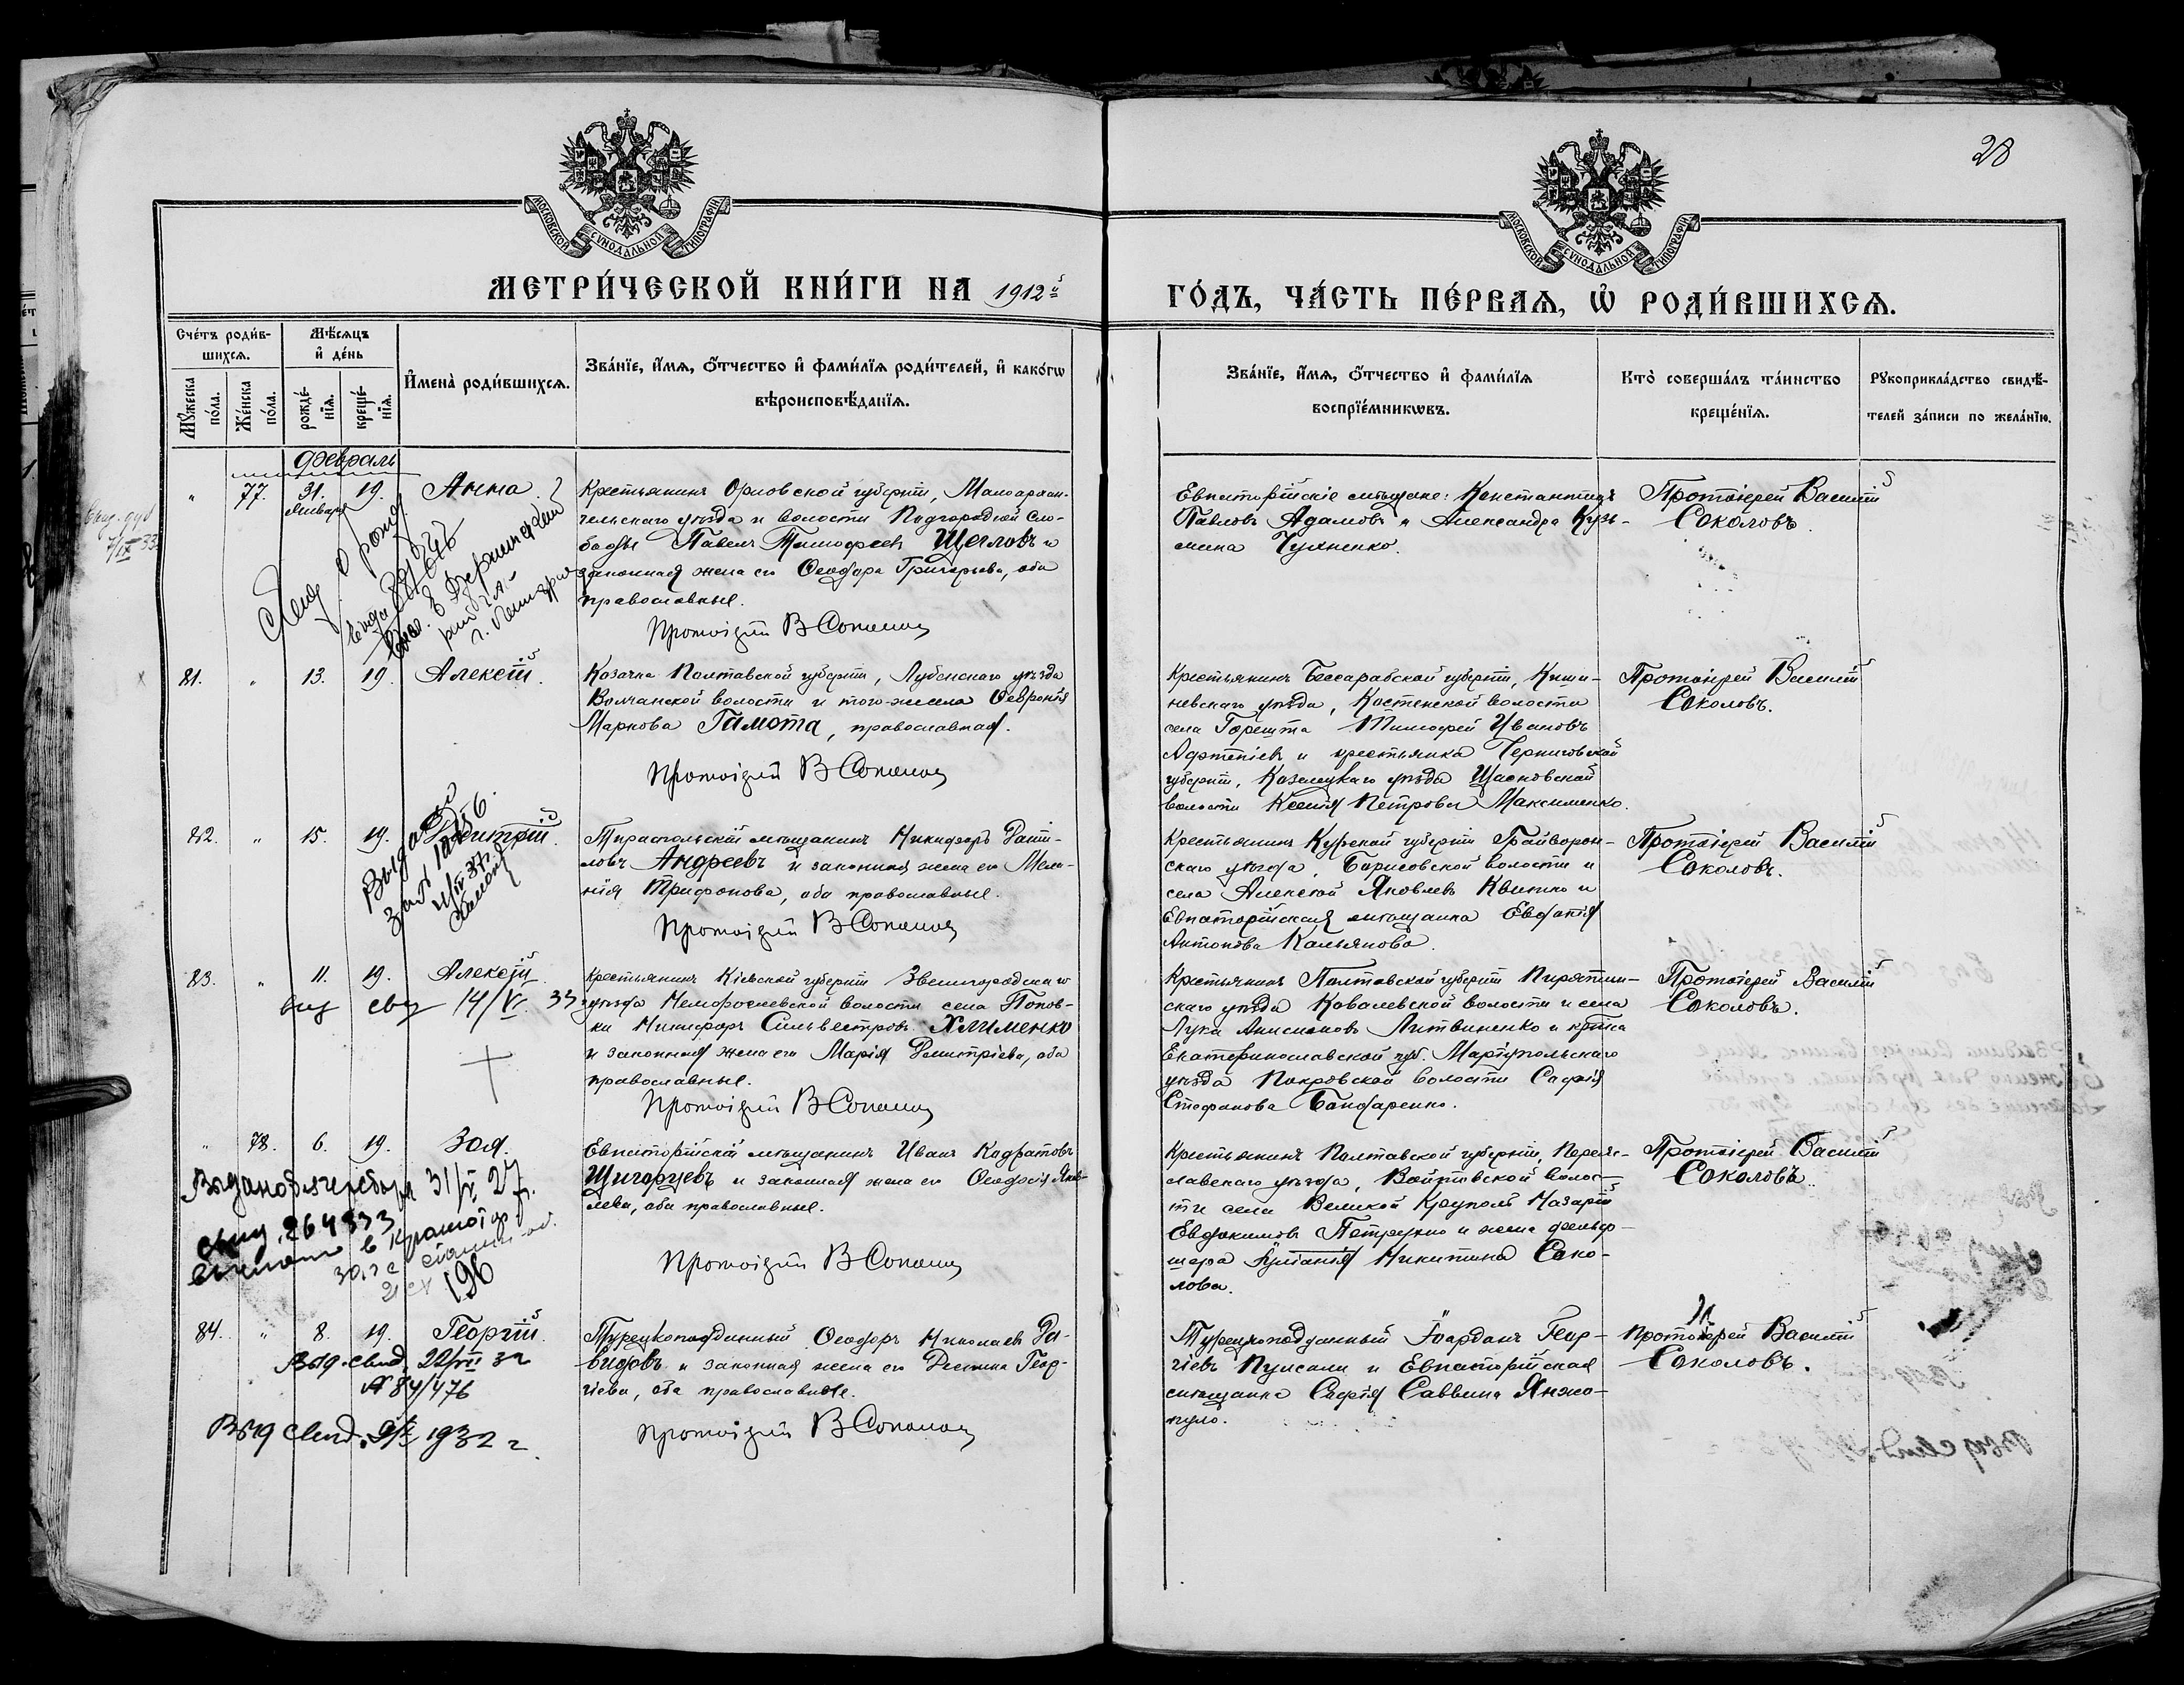 28
МОСКОВСКОЙ СѴНОДАЛЬНОЙ ТИПОГРАФІИ
МОСКОВСКОЙ СѴНОДАЛЬНОЙ ТИПОГРАФІИ
МЕТРИ́ЧЕСКОЙ КНИ́ГИ НА 1912й
ГО́ДЪ, ЧА́СТЬ ПЕ́РВАЯ, Ѡ РОДИ́ВШИХСЯ.
Сче́тъ роди́в-
шихся.
Мѣ́сяцъ
и де́нь
Му́жеска
по́ла.
Же́нска
по́ла.
рожде́-
нїя.
креще́-
нїя.
И҆мена̀ роди́вшихся.
Зва́нїе, и҆́мя, ѻ҆́тчество и҆ фами́лїя роди́телей, и҆ како́гѡ
вѣроисповѣ́данїя.
Зва́нїе, и҆́мя, ѻ҆́тчество и҆ фами́лїя
воспрїе́мникѡвъ.
Кто̀ соверша́лъ та́инство
креще́нїя.
Рукоприкла́дство свидѣ́-
телей за́писи по жела́нїю.
Февраль
" 77. 31. 19. Анна.
Января
Крестьянинъ Орловской губерніи, Малоархан-
гельскаго уѣзда и волости Подгородней Сло-
боды Павелъ Тимофеевъ Щегловъ и
законная жена его Ѳеодора Григорьева, оба
православные.
Протоіерей В Соколовъ
Евпаторійскіе мѣщане: Константинъ
Павловъ Адамовъ и Александра Кузь-
мина Чумченко.
Протоіерей Василій
Соколовъ.
81. " 13. 19. Алексій.
Козачка Полтавской губерніи, Лубенскаго уѣзда
Волчанской волости и того-же села Февронія
Маркова Гамота, православная.
Протоіерей В Соколовъ
Крестьянинъ Бессарабской губерніи, Киши-
невскаго уѣзда, Костенской волости
села Горешта Тимофей Ивановъ
и крестьянка Черниговской
губерніи, Козелецкаго уѣзда
волости Ксенія Петрова Максименко.
Протоіерей Василій
Соколовъ.
82. " 15. 19. Димитрій.
Тираспольскій мѣщанинъ Никифоръ Дани-
ловъ Андреевъ и законная жена его Мела-
нія Трифонова, оба православные.
Протоіерей В Соколовъ
Крестьянинъ Курской губерніи Грайворон-
скаго уѣзда, Борисовской волости и
села Алексѣй Яковлевъ Квитко и
Евпаторійская мѣщанка Евдокія
Антонова Касьянова.
Протоіерей Василій
Соколовъ.
83. " 11. 19. Алексій.
14/VI 33
Крестьянинъ Кіевской губерніи Звенигородскаго
уѣзда Неморожевской волости села Попов-
ки Никифоръ Сильвестровъ Хлименко
и законная жена его Марія Димитріева, оба
православные.
Протоіерей В Соколовъ
Крестьянинъ Полтавской губерніи Пирятин-
скаго уѣзда Ковалевской волости и села
Лука Анисимовъ Литвиненко и кр-нка
Екатеринославской губ. Маріупольскаго
уѣзда Покровской волости Софія
Стефанова Бондаренко.
Протоіерей Василій
Соколовъ.
" 78. 6. 19. Зоя.
31/V 27 г.
свид. 264833
196
Евпаторійскій мѣщанинъ Иванъ Кодратовъ
Щигорцевъ и законная жена его Ѳеодосія Яко-
лева, оба православные.
Протоіерей В Соколовъ
Крестьянинъ Полтавской губерніи, Переяс-
славскаго уѣзда, Войтовской волос-
ти села Великой Крупполь Назарій
Евдокимовъ Петренко и жена фельд-
шера Іуліанія Никитина Соко-
лова.
Протоіерей Василій
Соколовъ.
84. " 8. 19. Георгій.
Выд. свид. 22/VII 32
№ 84/476
Выд свид. 1932 г.
Турецкоподданный Ѳеодоръ Николаевъ Да-
видовъ и законная жена его Деспина Геор-
гіева, оба православные.
Протоіерей В Соколовъ
Турецкоподданный Іорданъ Геор-
гіевъ Пулсали и Евпаторійская
мѣщанка Софія Саввина Янжо-
пуло.
Протоіерей Василій
Соколовъ.